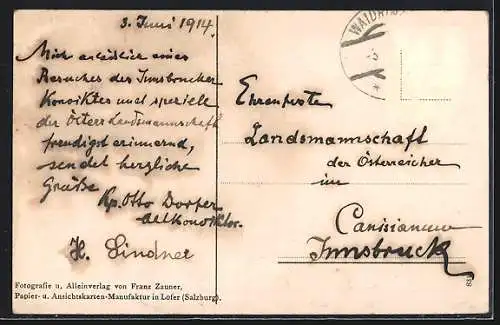 3. Juni 1914.
Mich anläßlich eines
Besuches des Innsbrucker
Konviktes und speziell
der Österr Landsmannschaft
freudigst erinnernd,
sendet herzliche
Grüße
Kp. Otto Dorfer
Altkonviktor.
H. Lindner
Fotografie u. Alleinverlag von Franz Zauner,
Papier- u. Ansichtskarten-Manufaktur in Lofer (Salzburg).
Ehrenfeste
Landsmannschaft
der Österreicher
im
Canisianum
Innsbruck